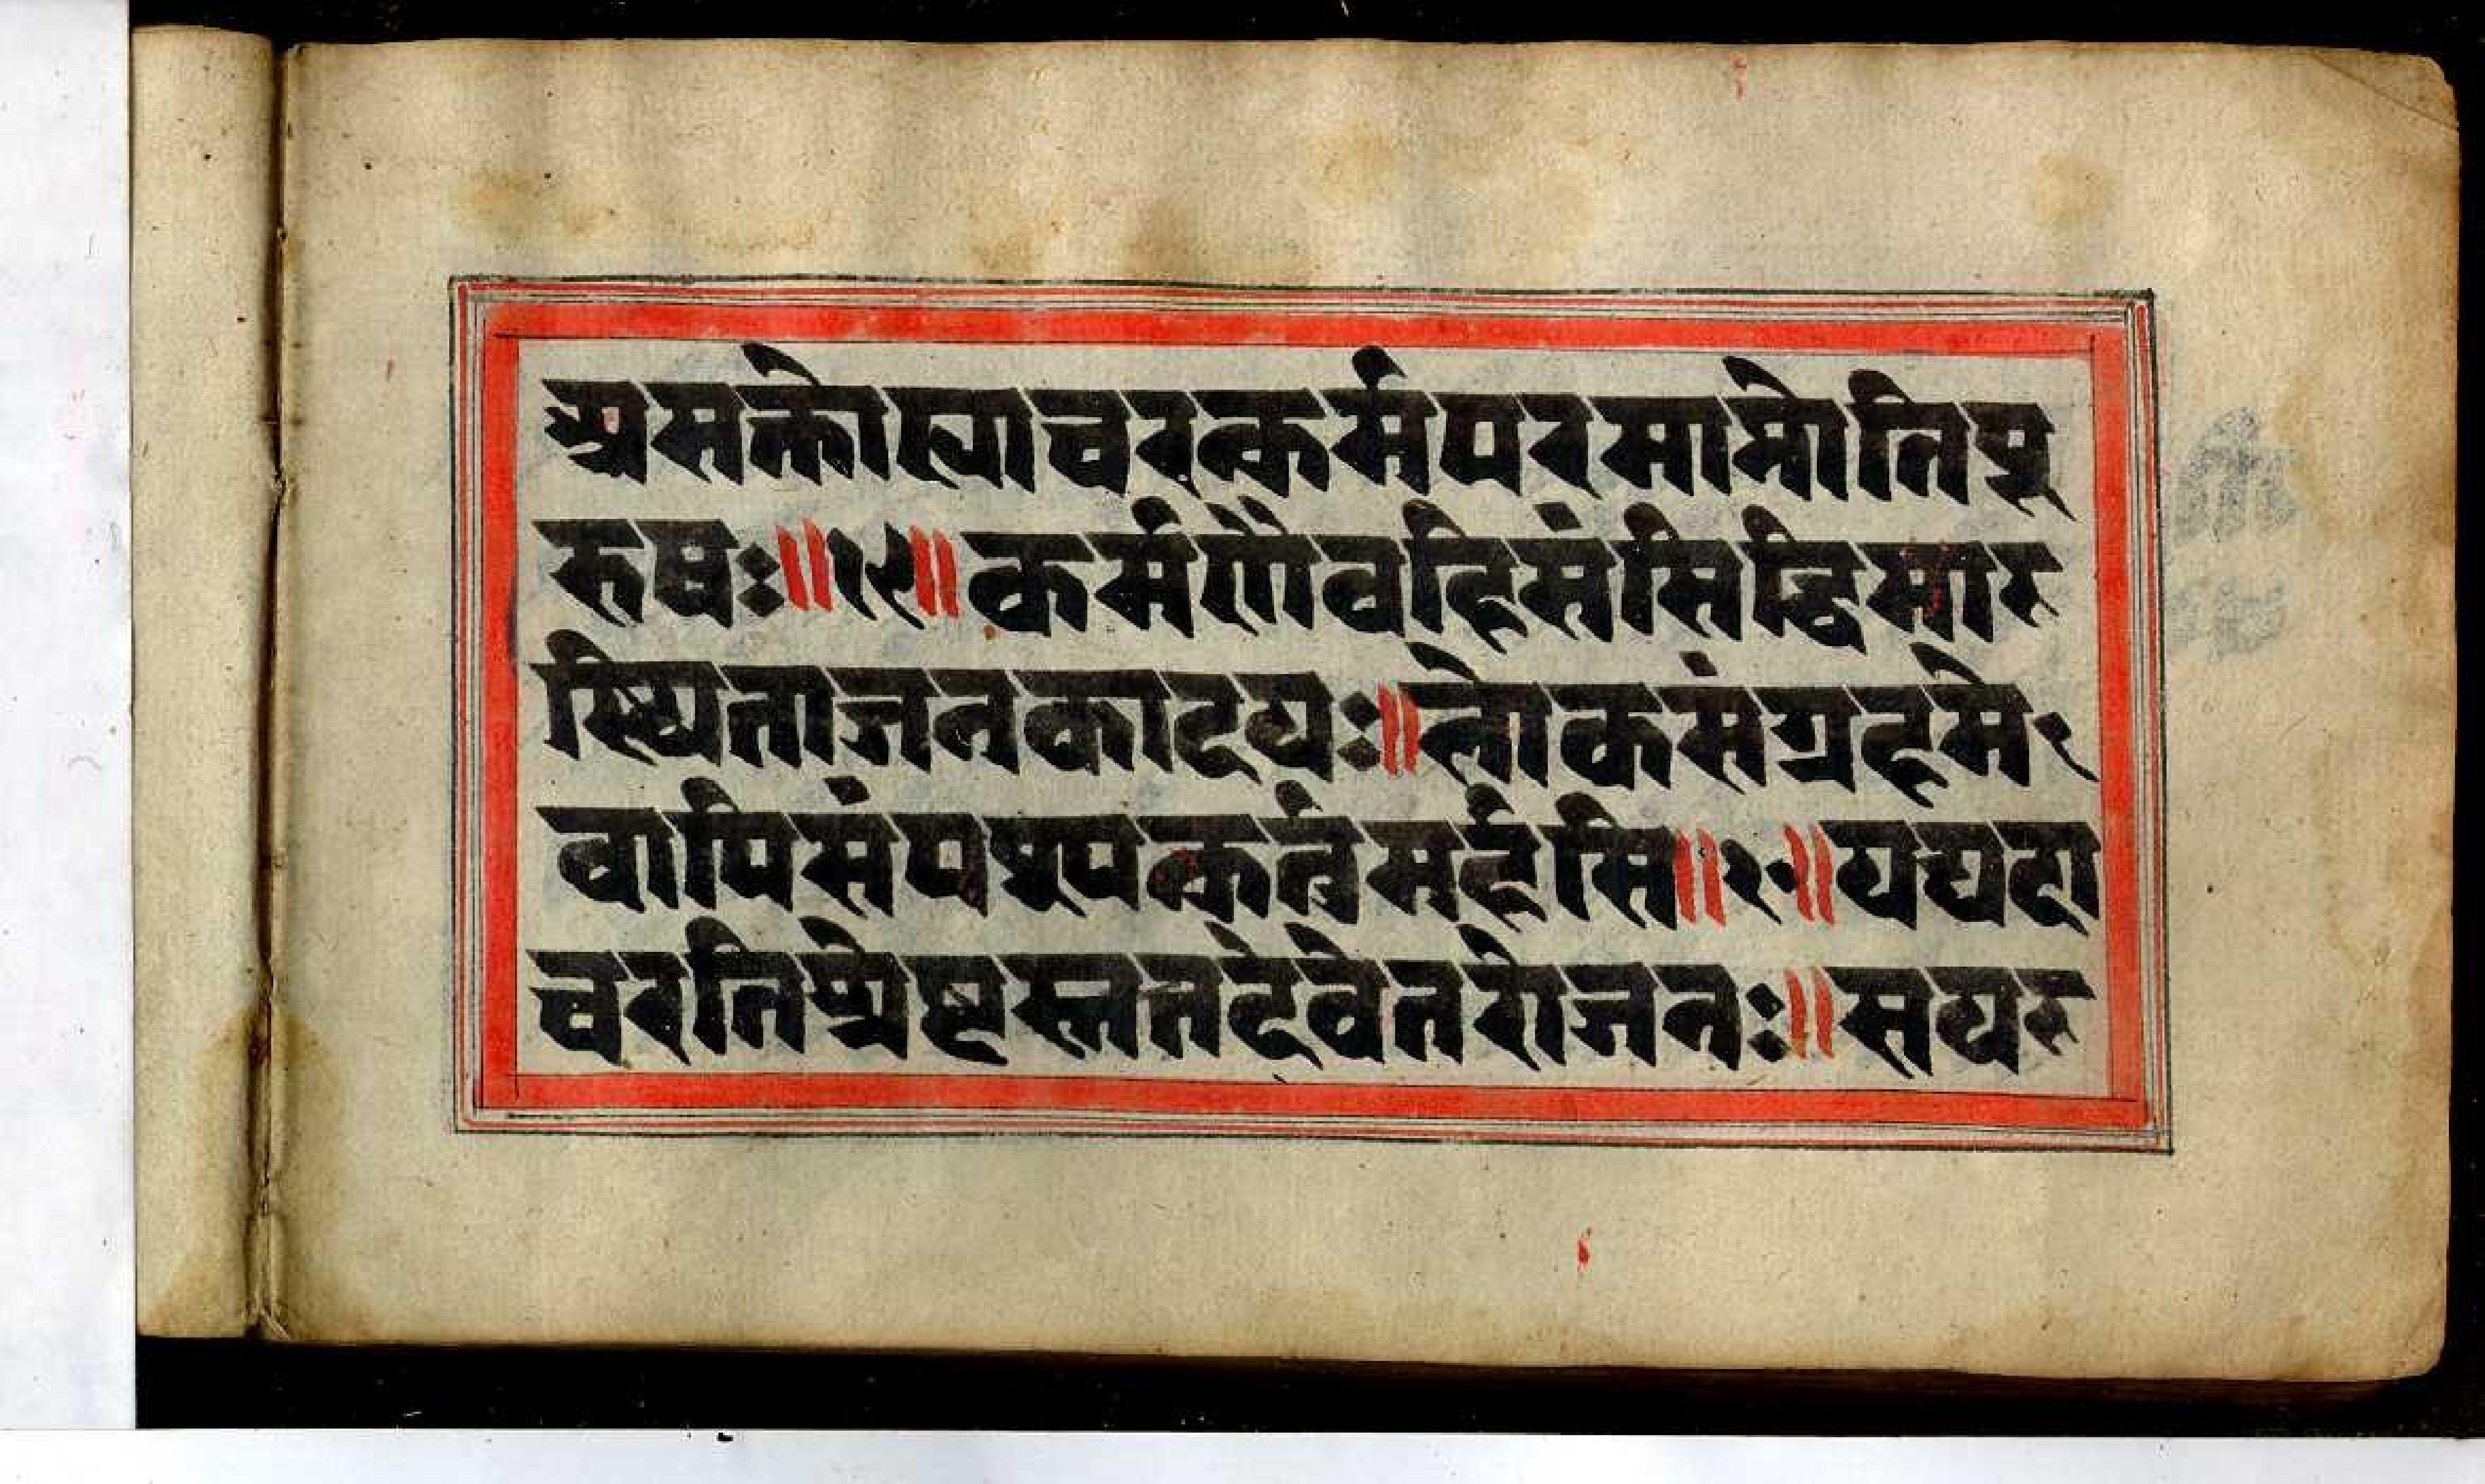 असक्तोह्याचरन्कर्मपरमाप्नोतिपू
रुषः॥१९॥कर्मणैवहिसंसिद्धिमास्
स्थिताजनकादयः॥लोकसंग्रहमे॰
वापिसंपश्यन्कर्तुमर्हसि॥२०॥यद्यदा
चरतिश्रेष्टस्तत्तदेवेतरोजनः॥सयत्